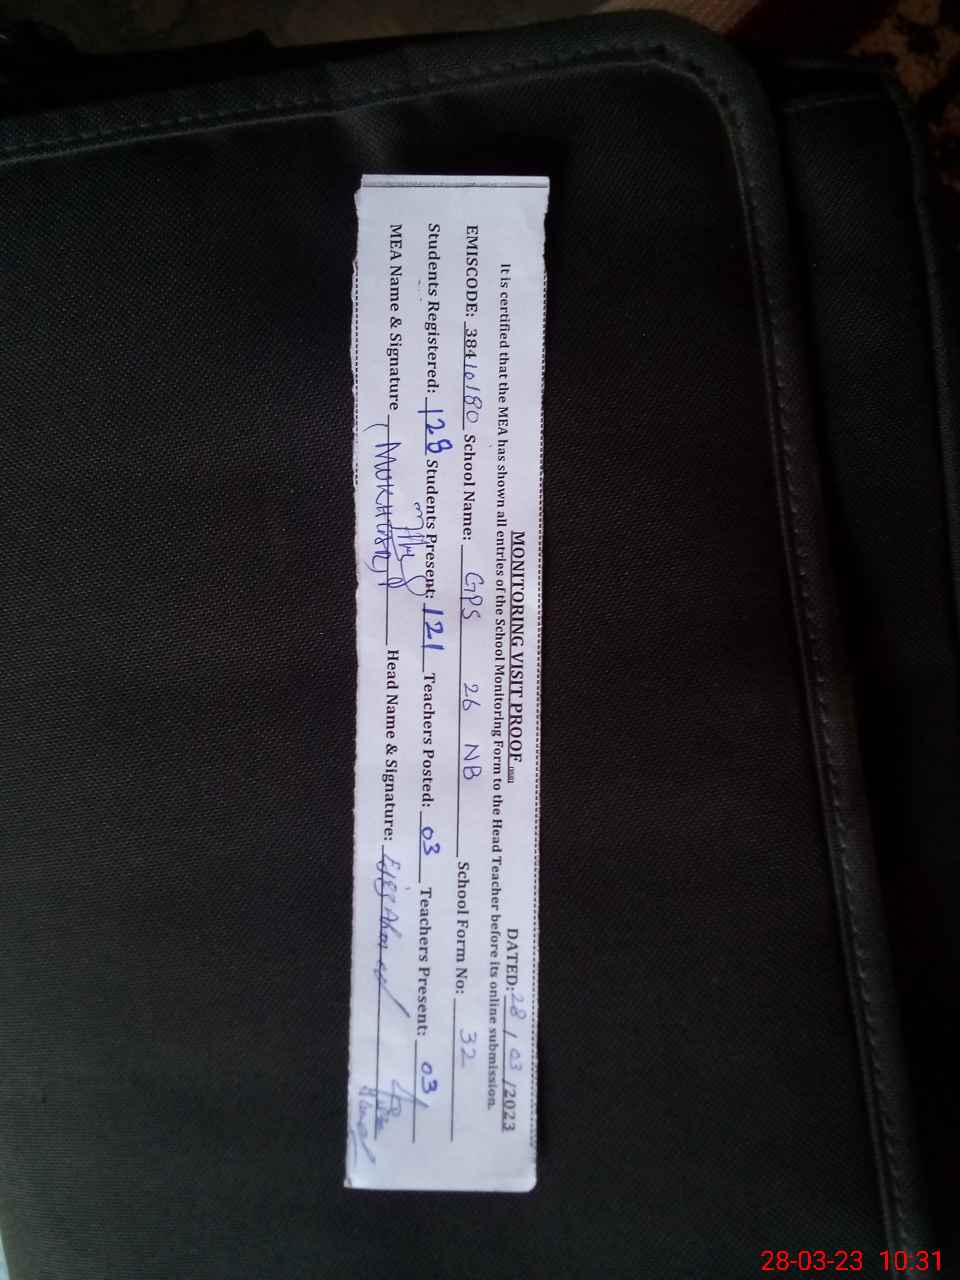 MONITORING VISIT PROOF
DATED: 28 / 03 /2023
It is certified that the MEA has shown all entries of the School Monitoring Form to the Head Teacher before its online submission.
EMISCODE: 38410180 School Name: GPS 26 NB School Form No: 32
Students Registered: 128 Students Present: 121 Teachers Posted: 03 Teachers Present: 03
MEA Name & Signature Head Name & Signature:
28-03-23 10:31